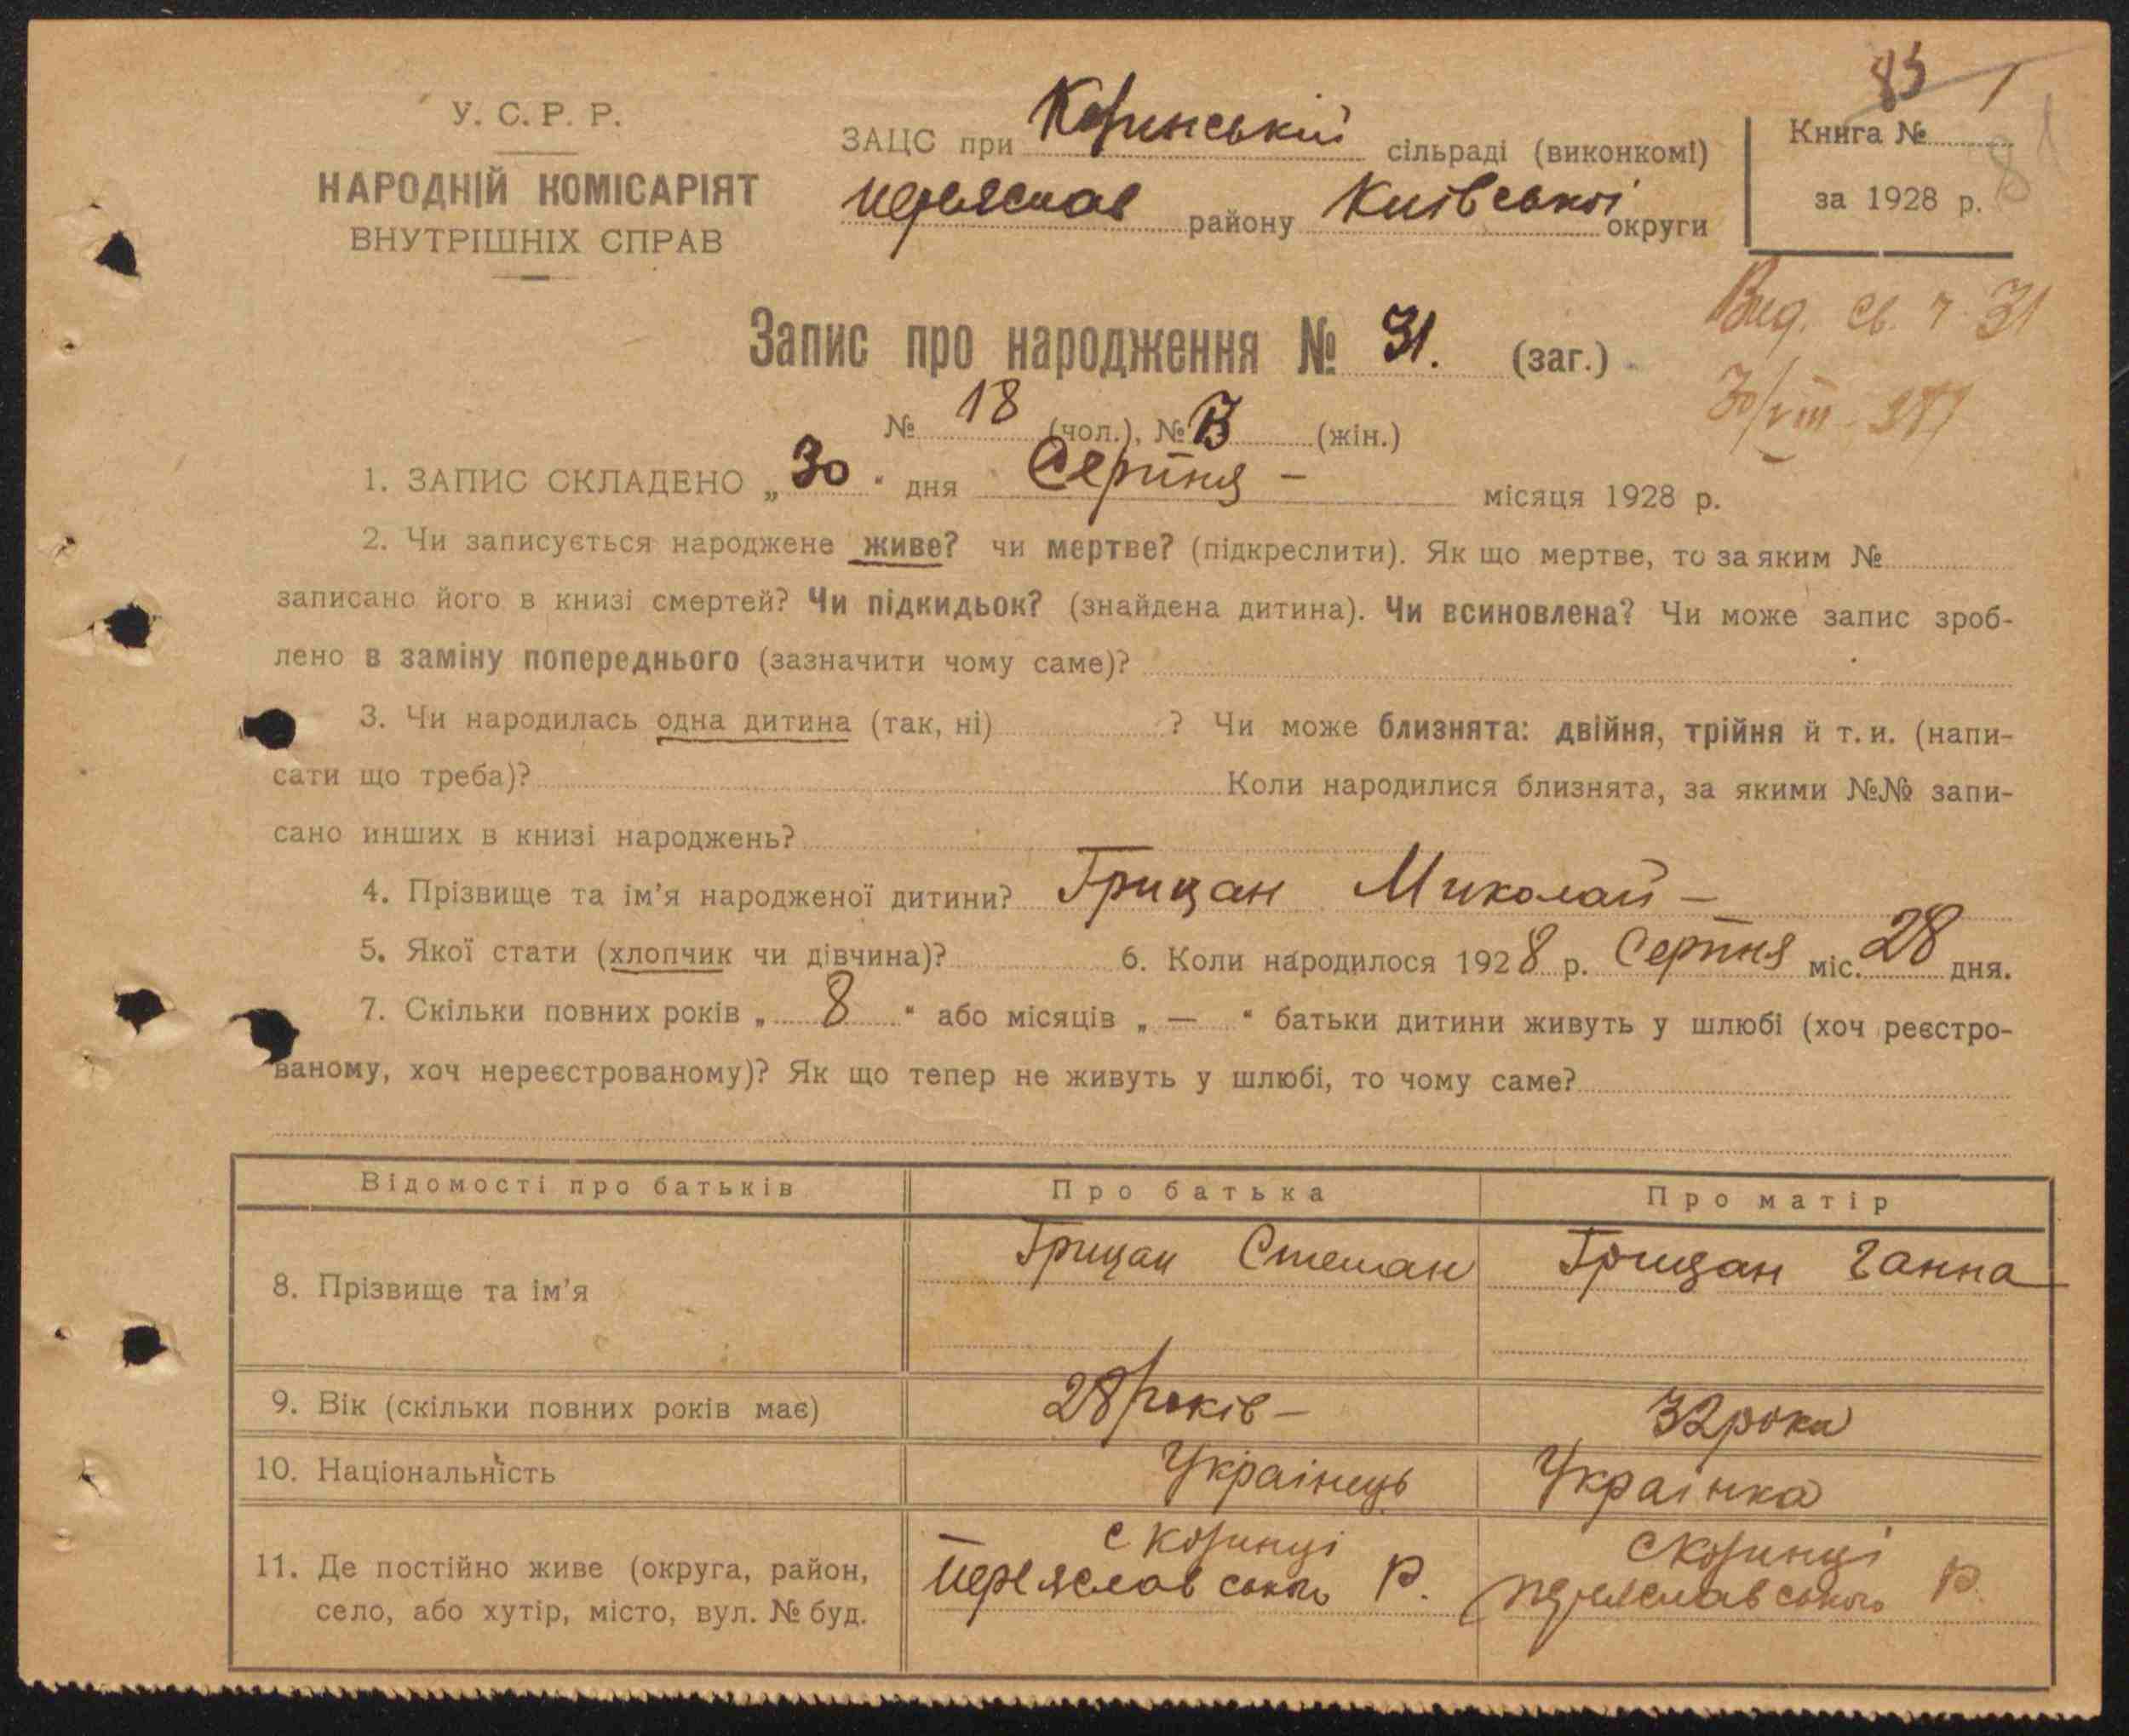 83 1
81
У. С. Р. Р.
НАРОДНІЙ КОМІСАРІЯТ
ВНУТРІШНІХ СПРАВ
ЗАЦС при сільраді (виконкомі)
Переяслав району Київської округи
Книга №
за 1928 р.
Вид. св. ч. 31
30/VIII
Запис про народження № 31. (заг.)
№ 18 (чол.), № 13 (жін.)
1. ЗАПИС СКЛАДЕНО „ 30 “ дня Серпня – місяця 1928 р.
2. Чи записується народжене живе? чи мертве? (підкреслити). Як що мертве, то за яким №
записано його в книзі смертей? Чи підкидьок? (знайдена дитина). Чи всиновлена? Чи може запис зроб-
лено в заміну попереднього (зазначити чому саме)?
3. Чи народилась одна дитина (так, ні) ? Чи може близнята: двійня, трійня й т. и. (напи-
сати що треба)? Коли народилися близнята, за якими №№ запи-
сано инших в книзі народжень?
4. Прізвище та ім’я народженої дитини? Грицан Миколай –
5. Якої стати (хлопчик чи дівчина)? 6. Коли народилося 1928 р. Серпня міс. 28 дня.
7. Скільки повних років „ 8 “ або місяців „ — “ батьки дитини живуть у шлюбі (хоч реєстро-
ваному, хоч нереєстрованому)? Як що тепер не живуть у шлюбі, то чому саме?
Відомості про батьків Про батька Про матір
8. Прізвище та ім’я Грицан Степан Грицан Ганна
9. Вік (скільки повних років має) 28 років – 32 роки
10. Національність Українець Українка
11. Де постійно живе (округа, район,
село, або хутір, місто, вул. № буд.
с
Переяславського Р.
с
Переяславського Р.